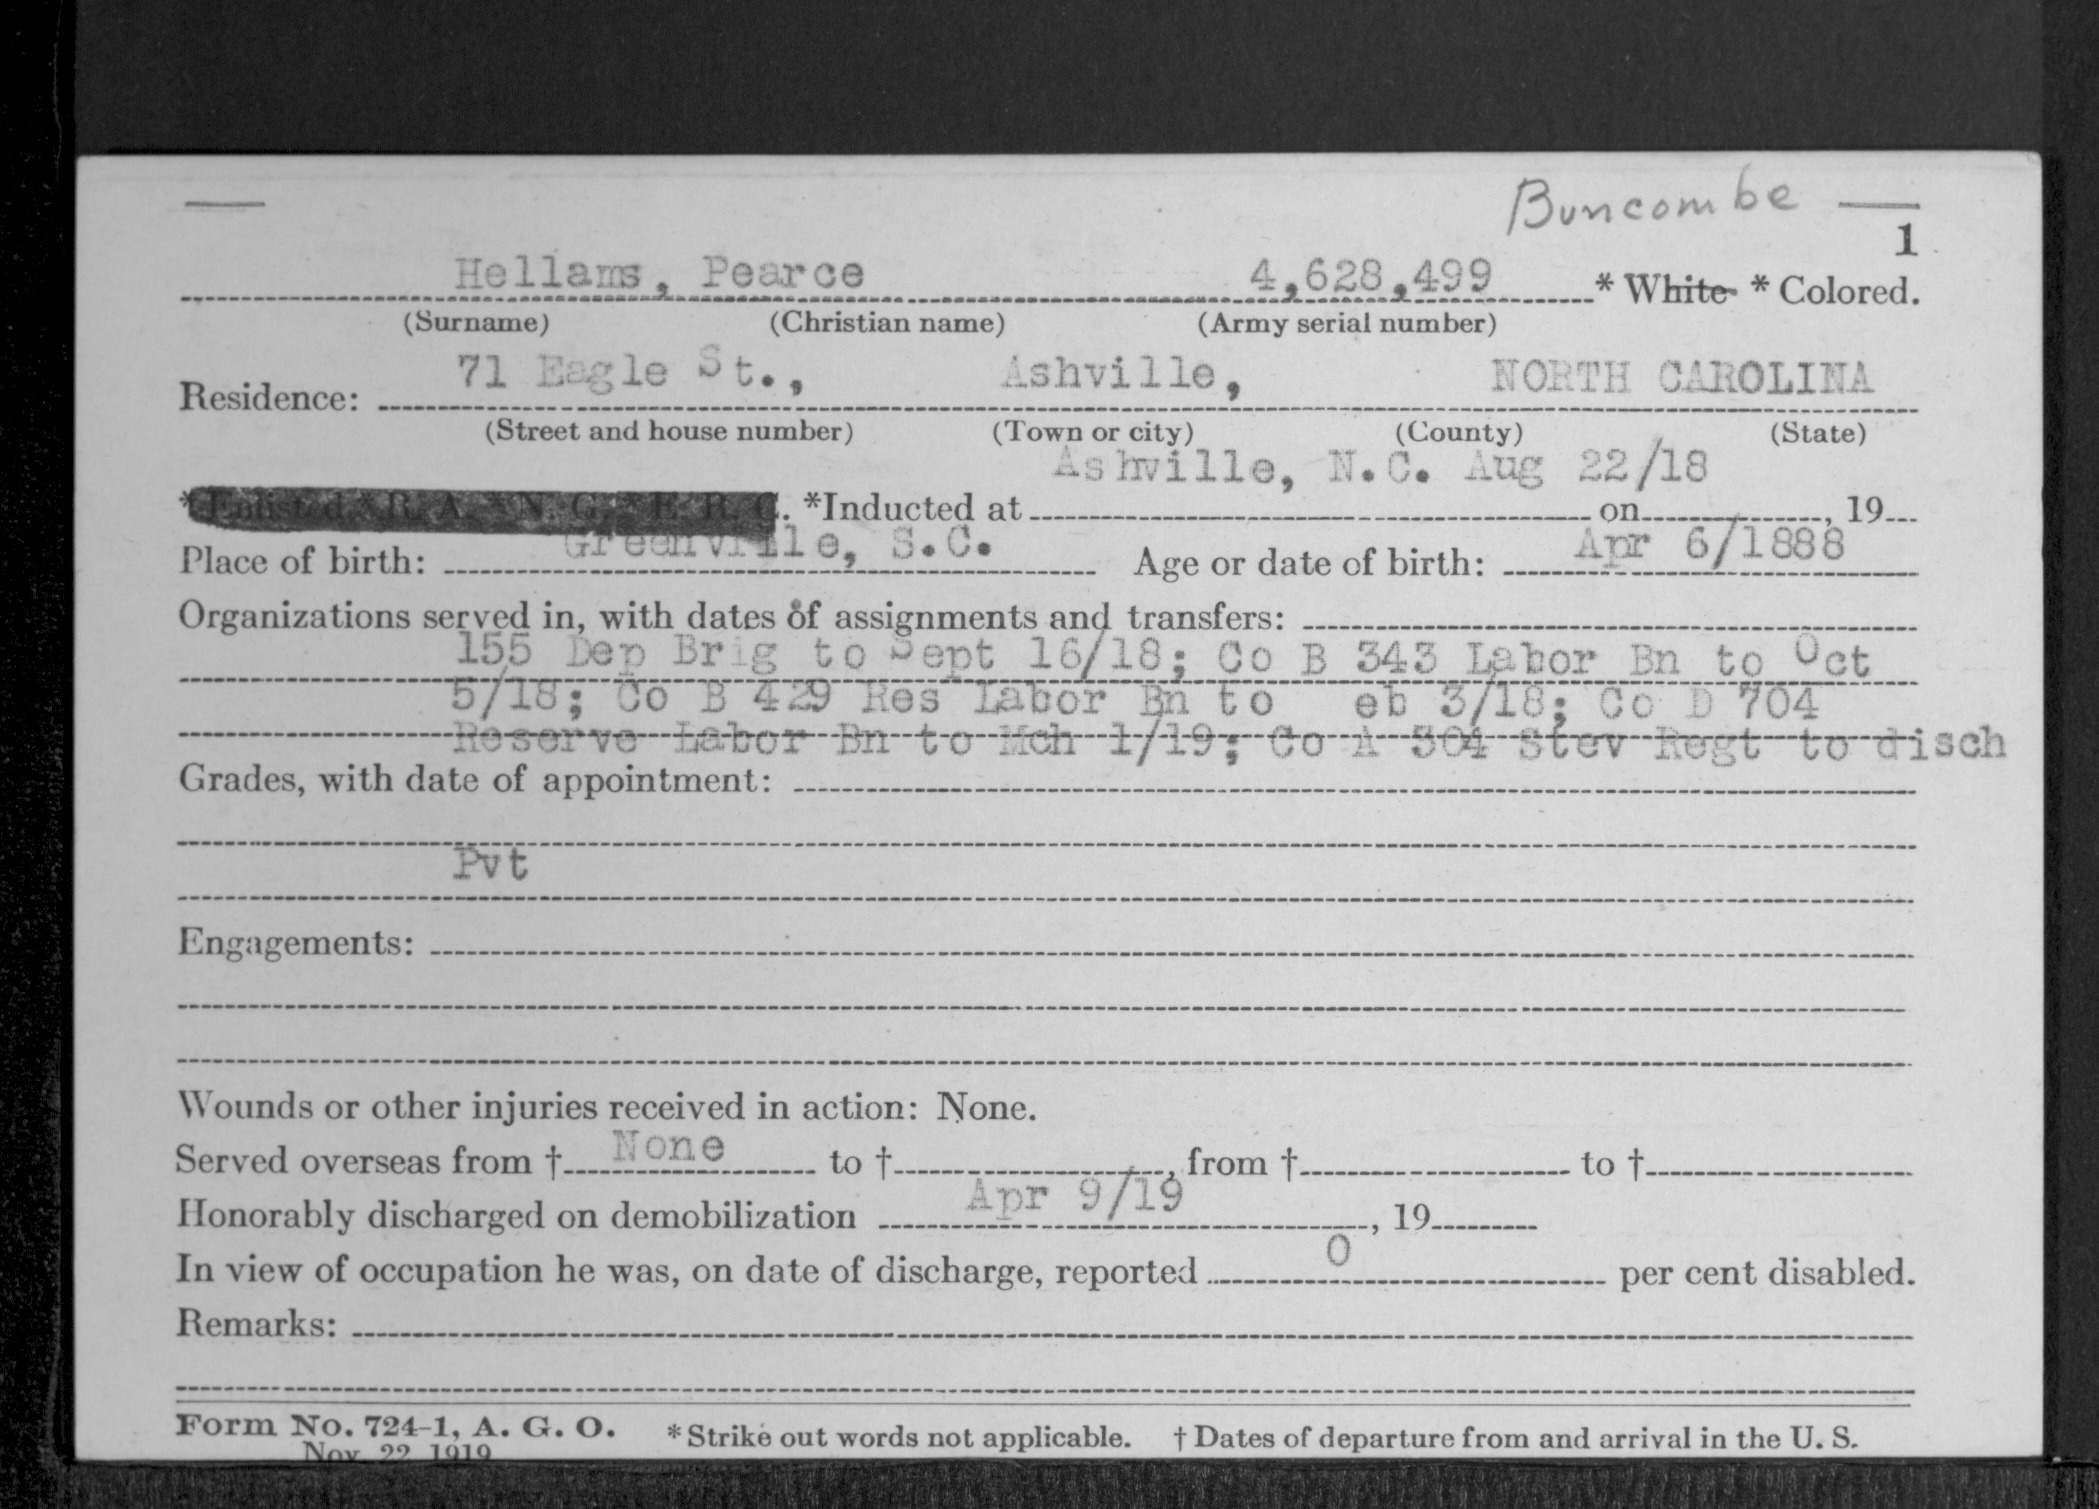 Buncombe
1
Hellams, Pearce 4,628,499 * White * Colored.
(Surname) (Christian name) (Army serial number)
71 Eagle St., Ashville, NORTH CAROLINA
Residence:
(Street and house number) (Town or city) (County) (State)
Ashville, N.C. Aug 22/18
*Enlisted *R. A. *N. G. *E. R. C. *Inducted at on , 19
Greenville, S.C. Apr 6/1888
Place of birth: Age or date of birth:
Organizations served in, with dates of assignments and transfers:
155 Dep Brig to Sept 16/18; Co B 343 Labor Bn to Oct
5/18; Co B 429 Res Labor Bn to eb 3/18; Co D 704
Reserve Labor Bn to Mch 1/19; Co A 304 Stev Regt to disch
Grades, with date of appointment:
Pvt
Engagements:
Wounds or other injuries received in action: None.
Served overseas from † None to † , from † to †
Apr 9/19
Honorably discharged on demobilization , 19
In view of occupation he was, on date of discharge, reported 0 per cent disabled.
Remarks:
Form No. 724-1, A. G. O. * Strike out words not applicable. † Dates of departure from and arrival in the U. S.
Nov. 22, 1919